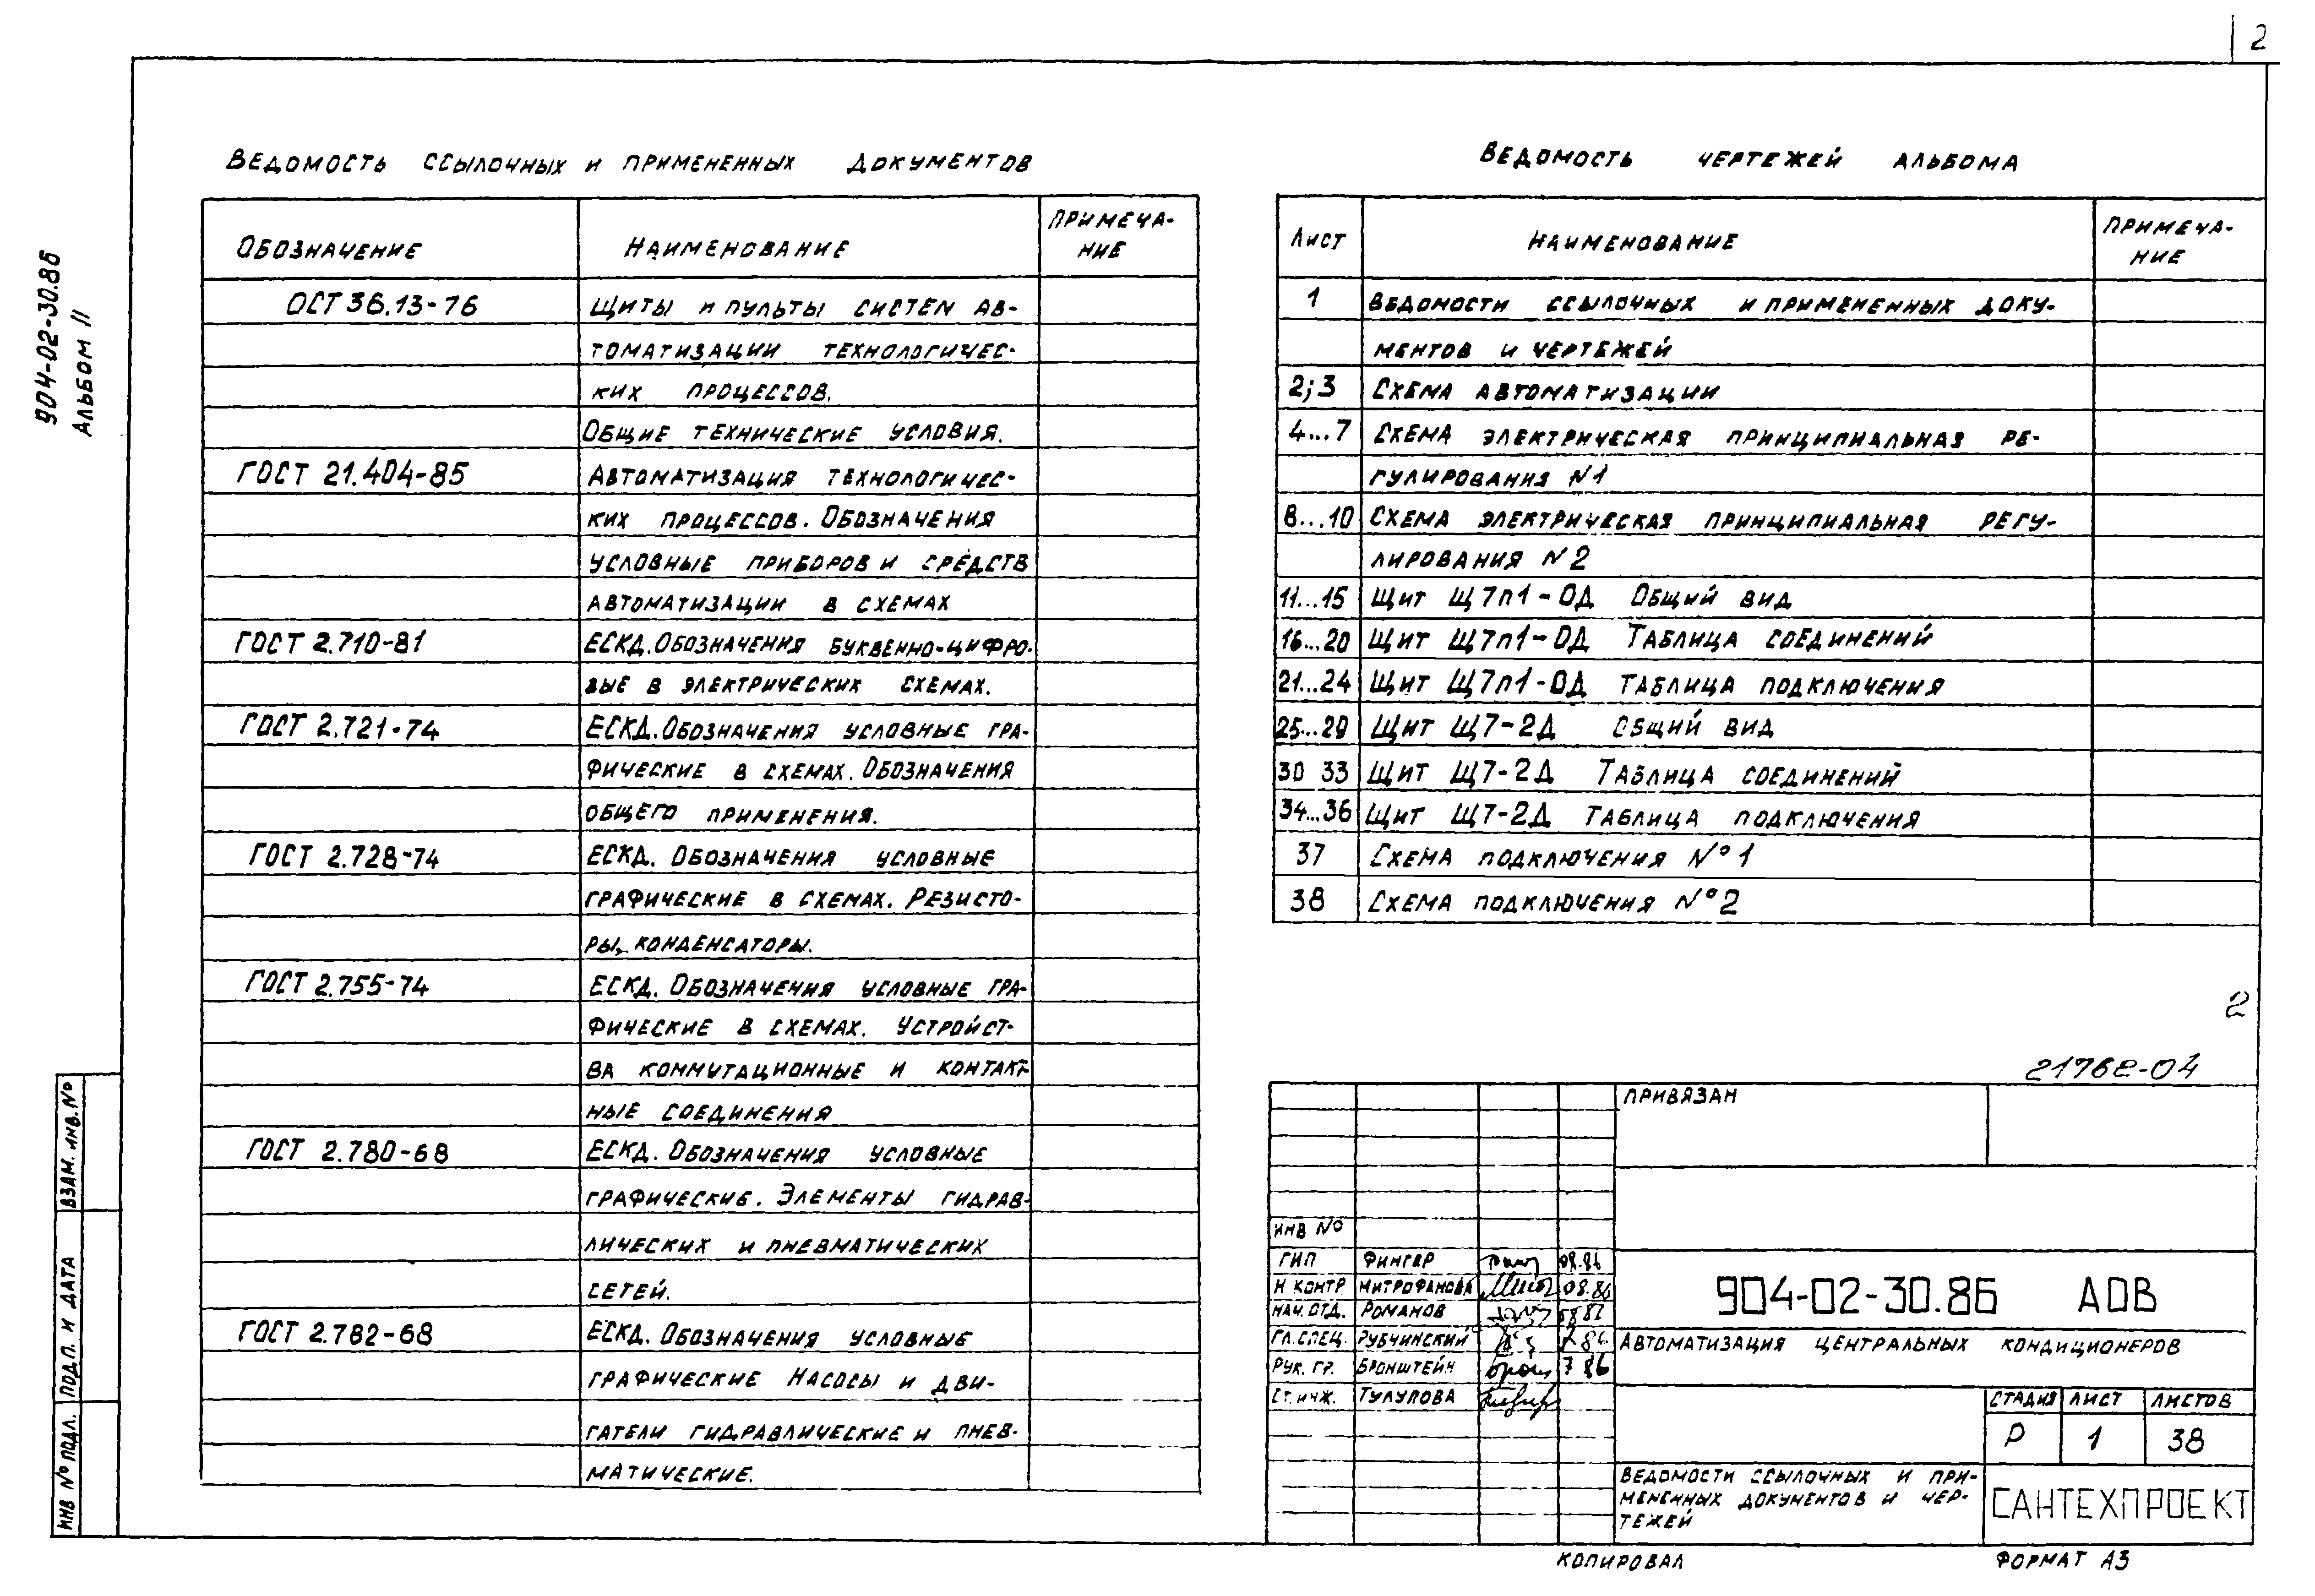 2
904-02-30.86
Альбом II
Ведомость ссылочных и примененных документов
Обозначение
Наименование
Примеча-
ние
ОСТ 36.13-76
Щиты и пульты систем ав-
томатизации технологичес-
ких процессов.
Общие технические условия.
ГОСТ 21.404-85
Автоматизация технологичес-
ких процессов. Обозначения
условные приборов и средств
автоматизации в схемах
ГОСТ 2.710-81
ЕСКД. Обозначения буквенно-цифро-
вые в электрических схемах.
ГОСТ 2.721-74
ЕСКД. Обозначения условные гра-
фические в схемах. Обозначения
общего применения.
ГОСТ 2.728-74
ЕСКД. Обозначения условные
графические в схемах. Резисто-
ры, конденсаторы.
ГОСТ 2.755-74
ЕСКД. Обозначения условные гра-
фические в схемах. Устройст-
ва коммутационные и контакт-
ные соединения
ГОСТ 2.780-68
ЕСКД. Обозначения условные
графические. Элементы гидрав-
лических и пневматических
сетей.
ГОСТ 2.782-68
ЕСКД. Обозначения условные
графические Насосы и дви-
гатели гидравлические и пнев-
матические.
Ведомость чертежей альбома
Лист
Наименование
Примеча-
ние
1 Ведомости ссылочных и примененных доку-
ментов и чертежей
2;3 Схема автоматизации
4...7 Схема электрическая принципиальная ре-
гулирования N1
8...10 Схема электрическая принципиальная регу-
лирования N2
11...15 Щит Щ7п1-ОД Общий вид
16...20 Щит Щ7п1-ОД Таблица соединений
21...24 Щит Щ7п1-ОД Таблица подключения
25...29 Щит Щ7-2Д Общий вид
30 33 Щит Щ7-2Д Таблица соединений
34...36 Щит Щ7-2Д Таблица подключения
37 Схема подключения №1
38 Схема подключения №2
2
21762-04
Привязан
Инв №
ГИП Фингер 08.86
Н контр Митрофанова 08.86
Нач. отд. Романов
Гл. спец. Рубчинский
Рук. гр. Бронштейн 7 86
Ст. инж. Тулупова
904-02-30.86 АОВ
Автоматизация центральных кондиционеров
Стадия Лист Листов
Р 1 38
Ведомости ссылочных и при-
мененных документов и чер-
тежей
САНТЕХПРОЕКТ
Взам. инв. №
Подп. и дата
Инв № подл.
Копировал
Формат А3